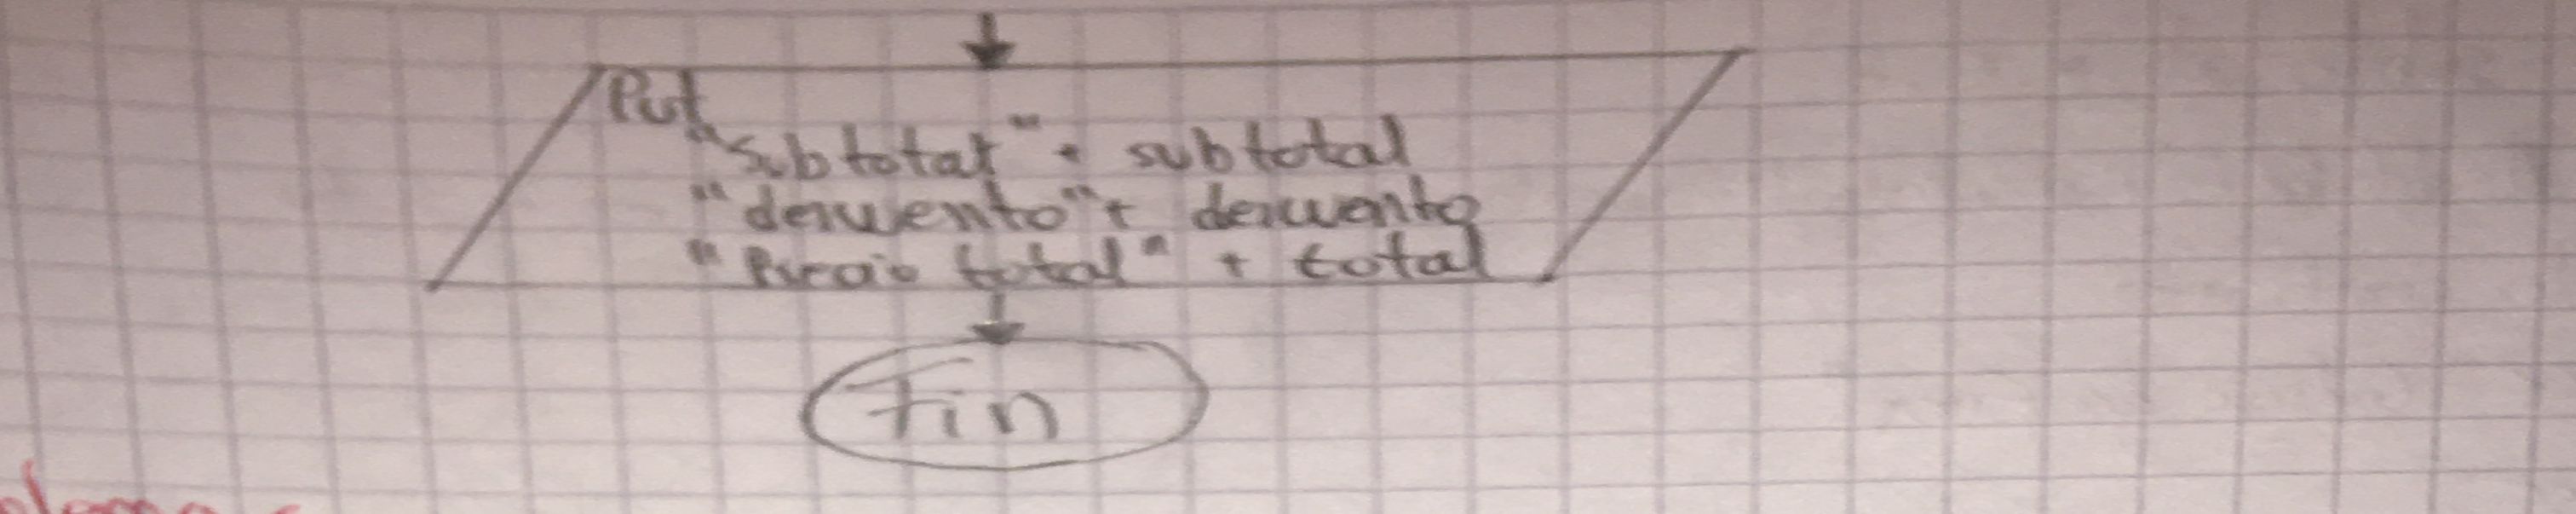 Put
"Subtotal" + subtotal
"descuento" + descuento
"Precio total" + total
Fin